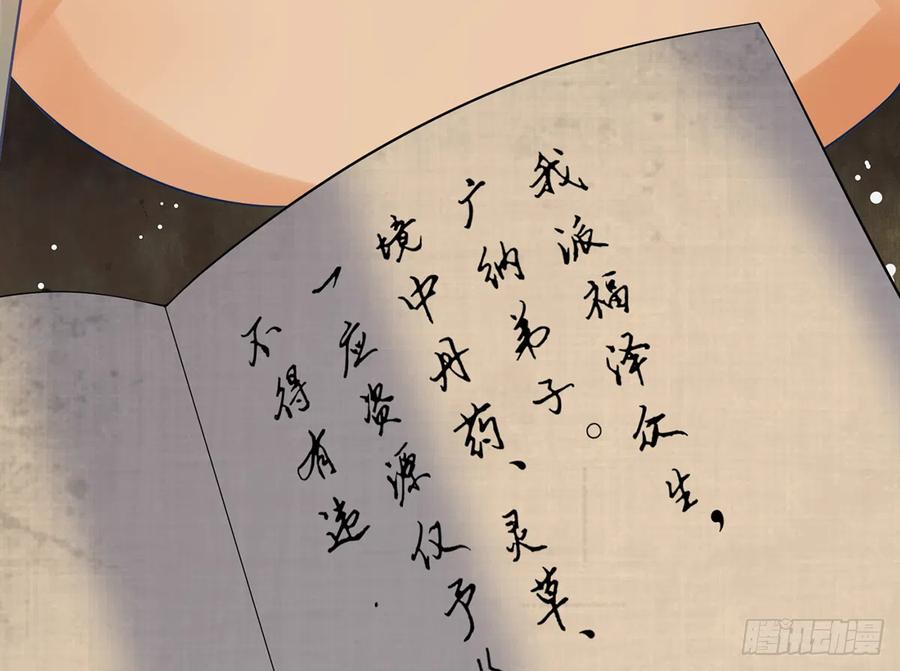 我派福泽众生，
广纳弟子。
境中丹药、灵草、
一应资源仅予
不得有违.
腾讯动漫